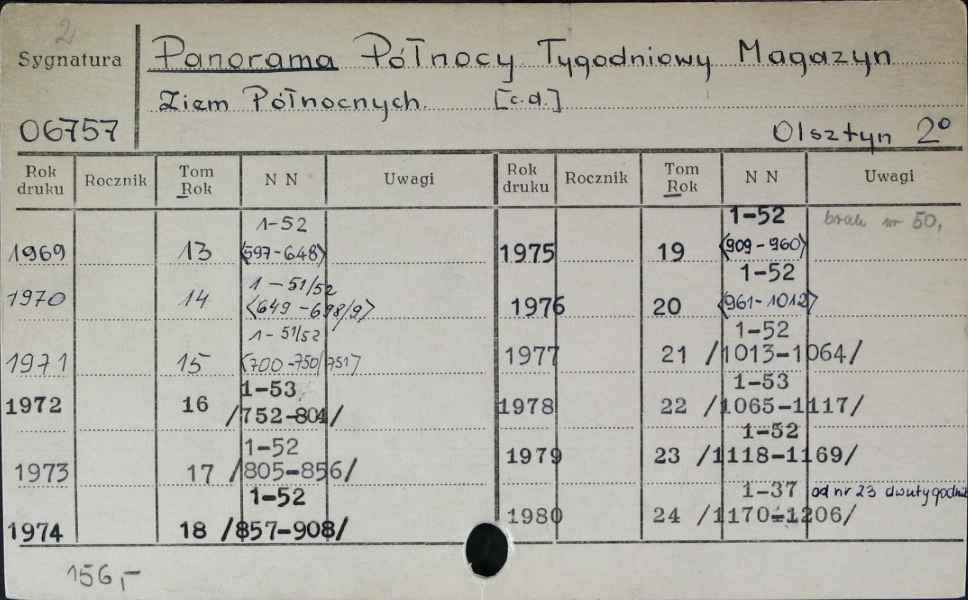 2
Sygnatura
Panorama Północy Tygodniowy Magazyn
Ziem Północnych. [c.d.]
06757
Olsztyn 2°
Rok druku Rocznik Tom Rok N N Uwagi
1969 13 1-52 <597-648>
1970 14 1-51/52 <649-698/9>
1971 15 1-51/52 <700-750/751>
1972 16 1-53 /752-804/
1973 17 1-52 /805-856/
1974 18 1-52 /857-908/
Rok druku Rocznik Tom Rok N N Uwagi
1975 19 1-52 <909-960> brak nr 50,
1976 20 1-52 <961-1012>
1977 21 1-52 /1013-1064/
1978 22 1-53 /1065-1117/
1979 23 1-52 /1118-1169/
1980 24 1-37 /1170-1206/ od nr 23 dwutygodni
156,-